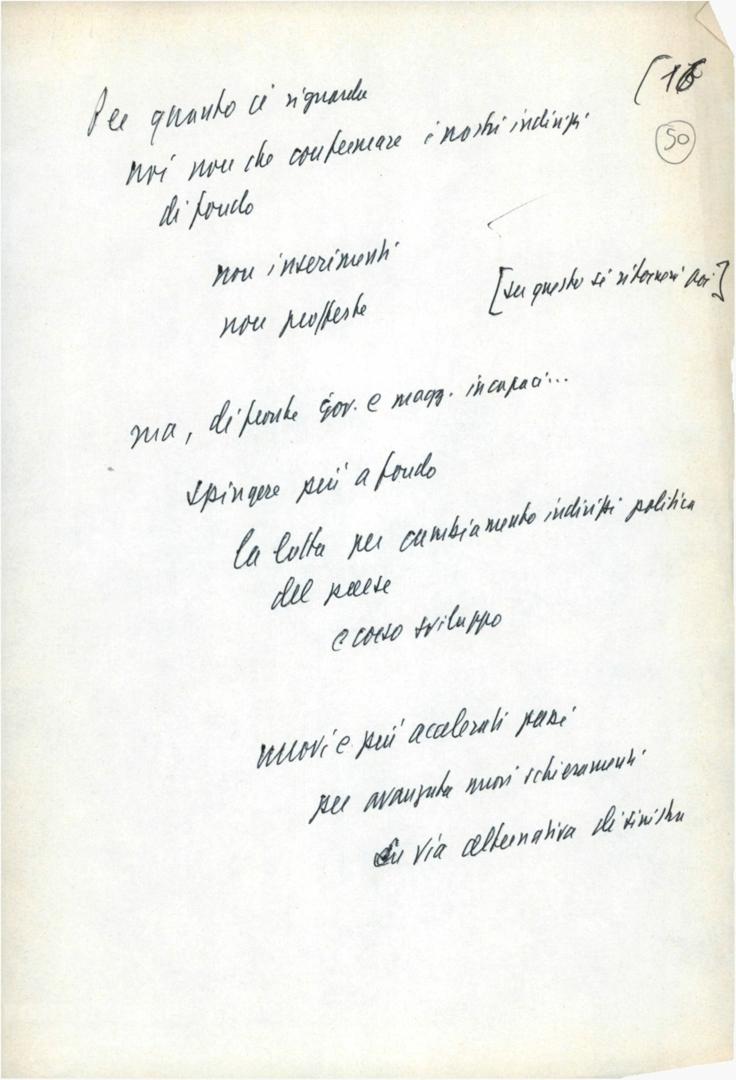 (16
50
Per quanto ci riguarda
noi non che confermare i nostri indirizzi
di fondo
non inserimenti
non profferte
[su questo si ritornerà poi]
ma, di fronte gov. e magg. incapaci...
spingere più a fondo
la lotta per cambiamento indirizzi politica
del paese
e corso sviluppo
nuovi e più accelerati passi
per avanzata nuovi schieramenti
su via alternativa di sinistra